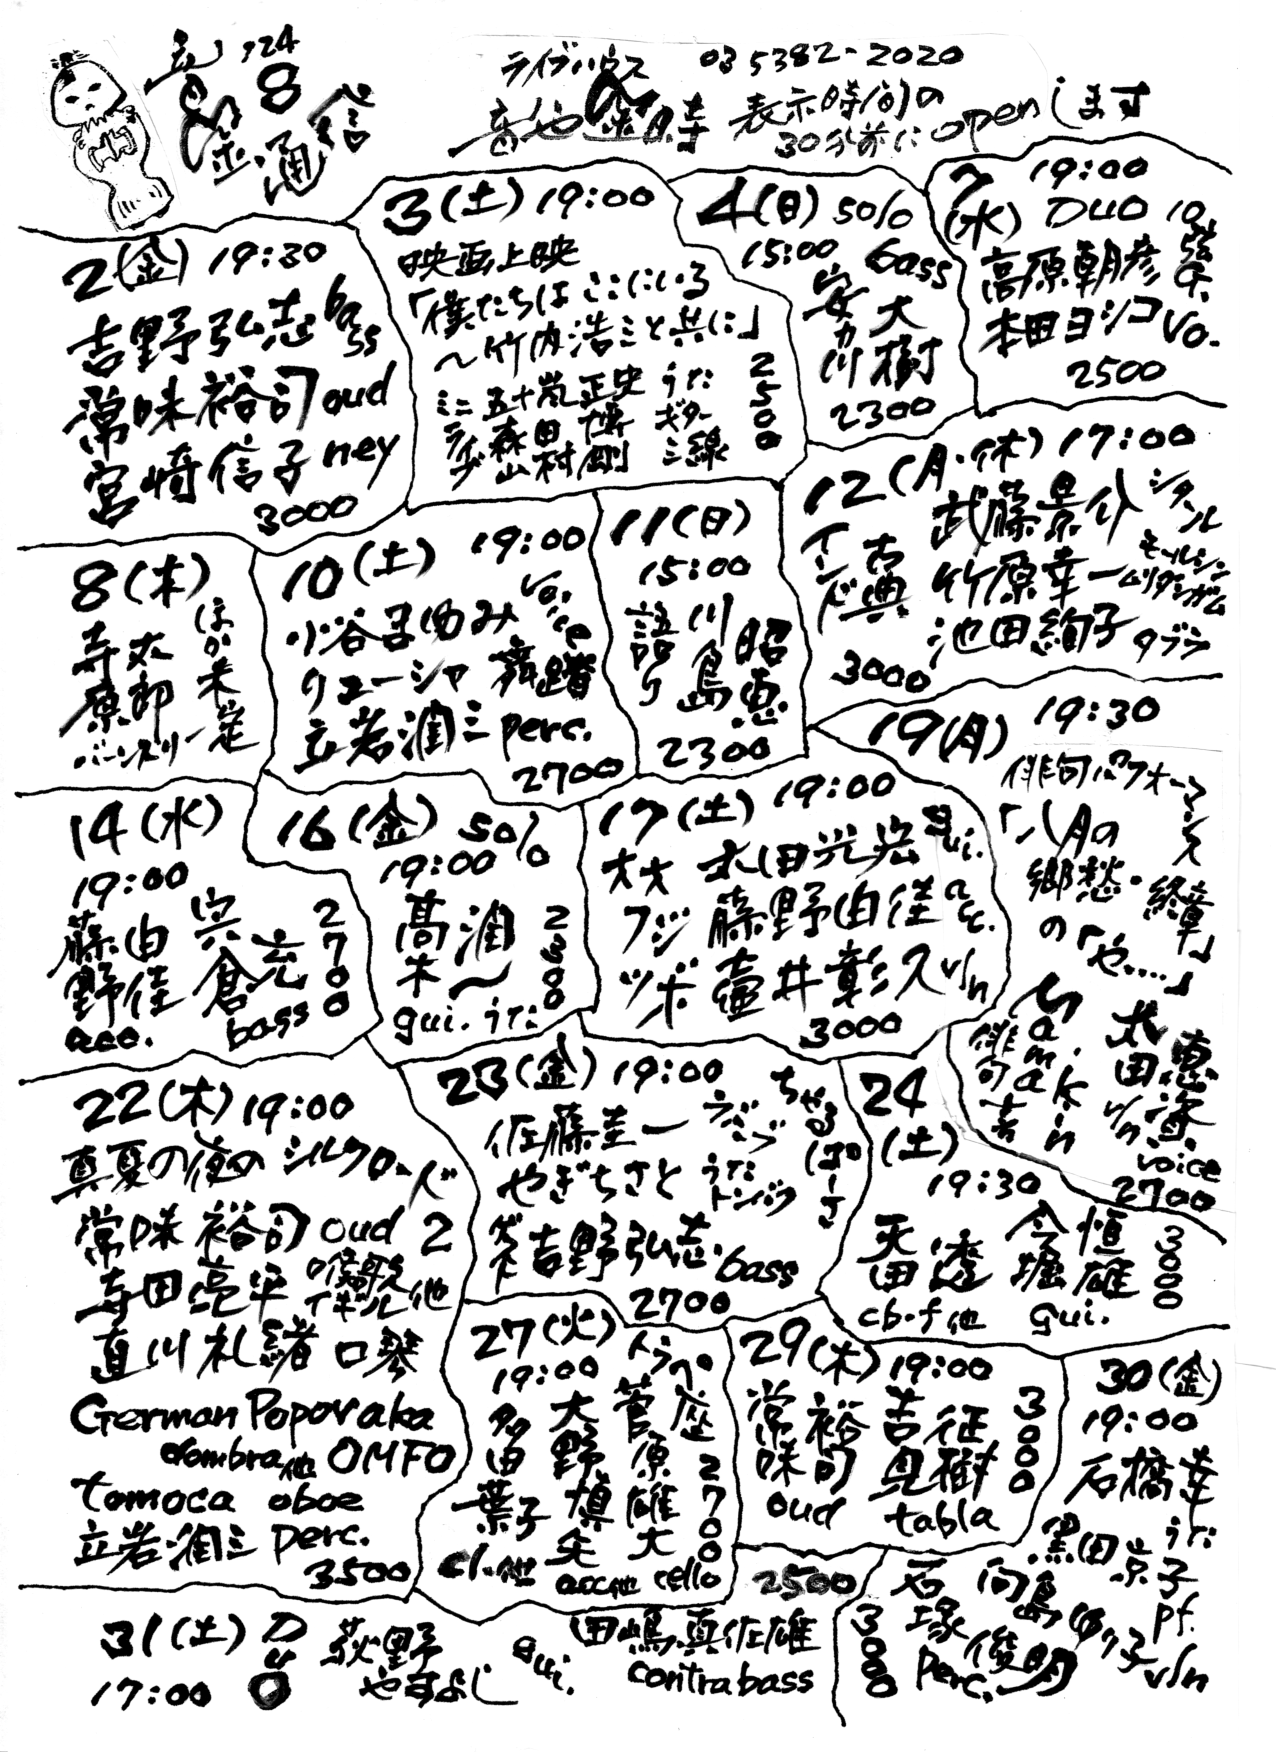 音や金通信 '24 8
ライブハウス 03 5382-2020
音や金時 表示時間の
30分前にopenします
2(金) 19:30
吉野弘志 bass
常味裕司 oud
宮﨑信子 ney
3000
3(土) 19:00
映画上映
「僕たちはここにいる
〜竹内浩三と共に」
ミニライブ
五十嵐正史 うた
森田博 ギター
山村剛 三線
2500
4(日) 50%
15:00 bass
安カ川大樹
2300
7(水) 19:00
DUO
高原朝彦 10弦ギ.
本田ヨシコ Vo.
2500
8(木)
寺原太郎
バーンスリー
ほか未定
10(土) 19:00
小谷呂ゆみ voice
クェーシャ 舞踏
立岩潤三 perc.
2700
11(日)
15:00
語り
川島昭恵
2300
12(月・休) 17:00
インド古典
武藤景介 シタール
竹原幸一 モールシン ムリダンガム
池田絢子 タブラ
3000
14(水)
19:00
藤野由佳 acc.
宍倉充 bass
2700
16(金) 50%
19:00
高木潤一
gui. うた
2300
17(土) 19:00
太田光宏 gui.
藤野由佳 acc.
壺井彰久 vln
3000
19(月) 19:30
俳句パフォーマンス
「八月の
郷愁・終章」
の「や....」
太田惠資 vln voice
2700
22(木) 19:00
真夏の夜のシルクロード
常味裕司 oud
寺田亮平 喉歌 イギル他
直川礼緒 口琴
German Popovaka
dombra他 OMFO
tomoca oboe
立岩潤三 perc.
3500
23(金) 19:00
ちゃるぱーさ
佐藤圭一 ラバーブ
やぎちさと うた トンバク
ゲスト 吉野弘志 bass
2700
24(土)
19:30
天田透 cb.f他
今堀恒雄 gui.
3000
27(火) トラペ座
19:00
多田葉子 cl.他
大野慎矢 acc他
菅原雄大 cello
2700
29(木) 19:00
常味裕司 oud
吉見征樹 tabla
3000
30(金)
19:00
石橋幸 うた
黒田京子 pf.
向島ゆり子 vln
石塚俊明 perc.
3000
31(土) Duo
17:00
荻野やすよし gui.
田嶋真佐雄
contrabass
2500